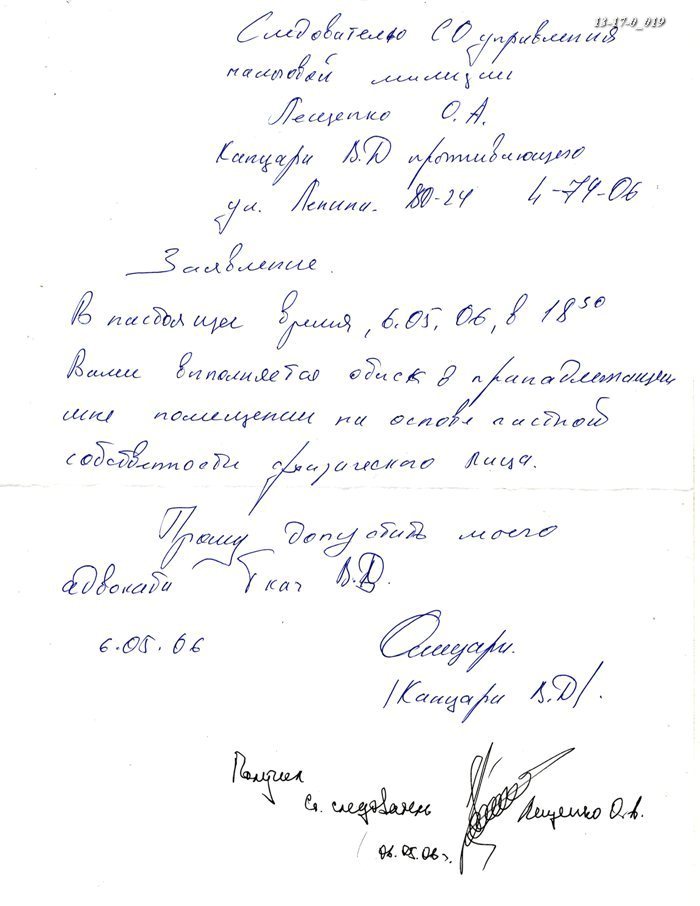 13-17-0_019
Следователю СО управления
налоговой милиции
Лещенко О.А.
Канцари В.Д проживающего
ул. Ленина. 80-24 4-74-06
Заявление.
В настоящее время, 6.05.06, в 18 30
Вами выполняется обиск в принадлежащем
мне помещении на основе частной
собственности физического лица.
Прошу допустить моего
адвоката Ткач В.Д.
6.05.06
/Канцари В.Д/.
Получил
Ст. следователь Лещенко О.А.
06.05.06г.